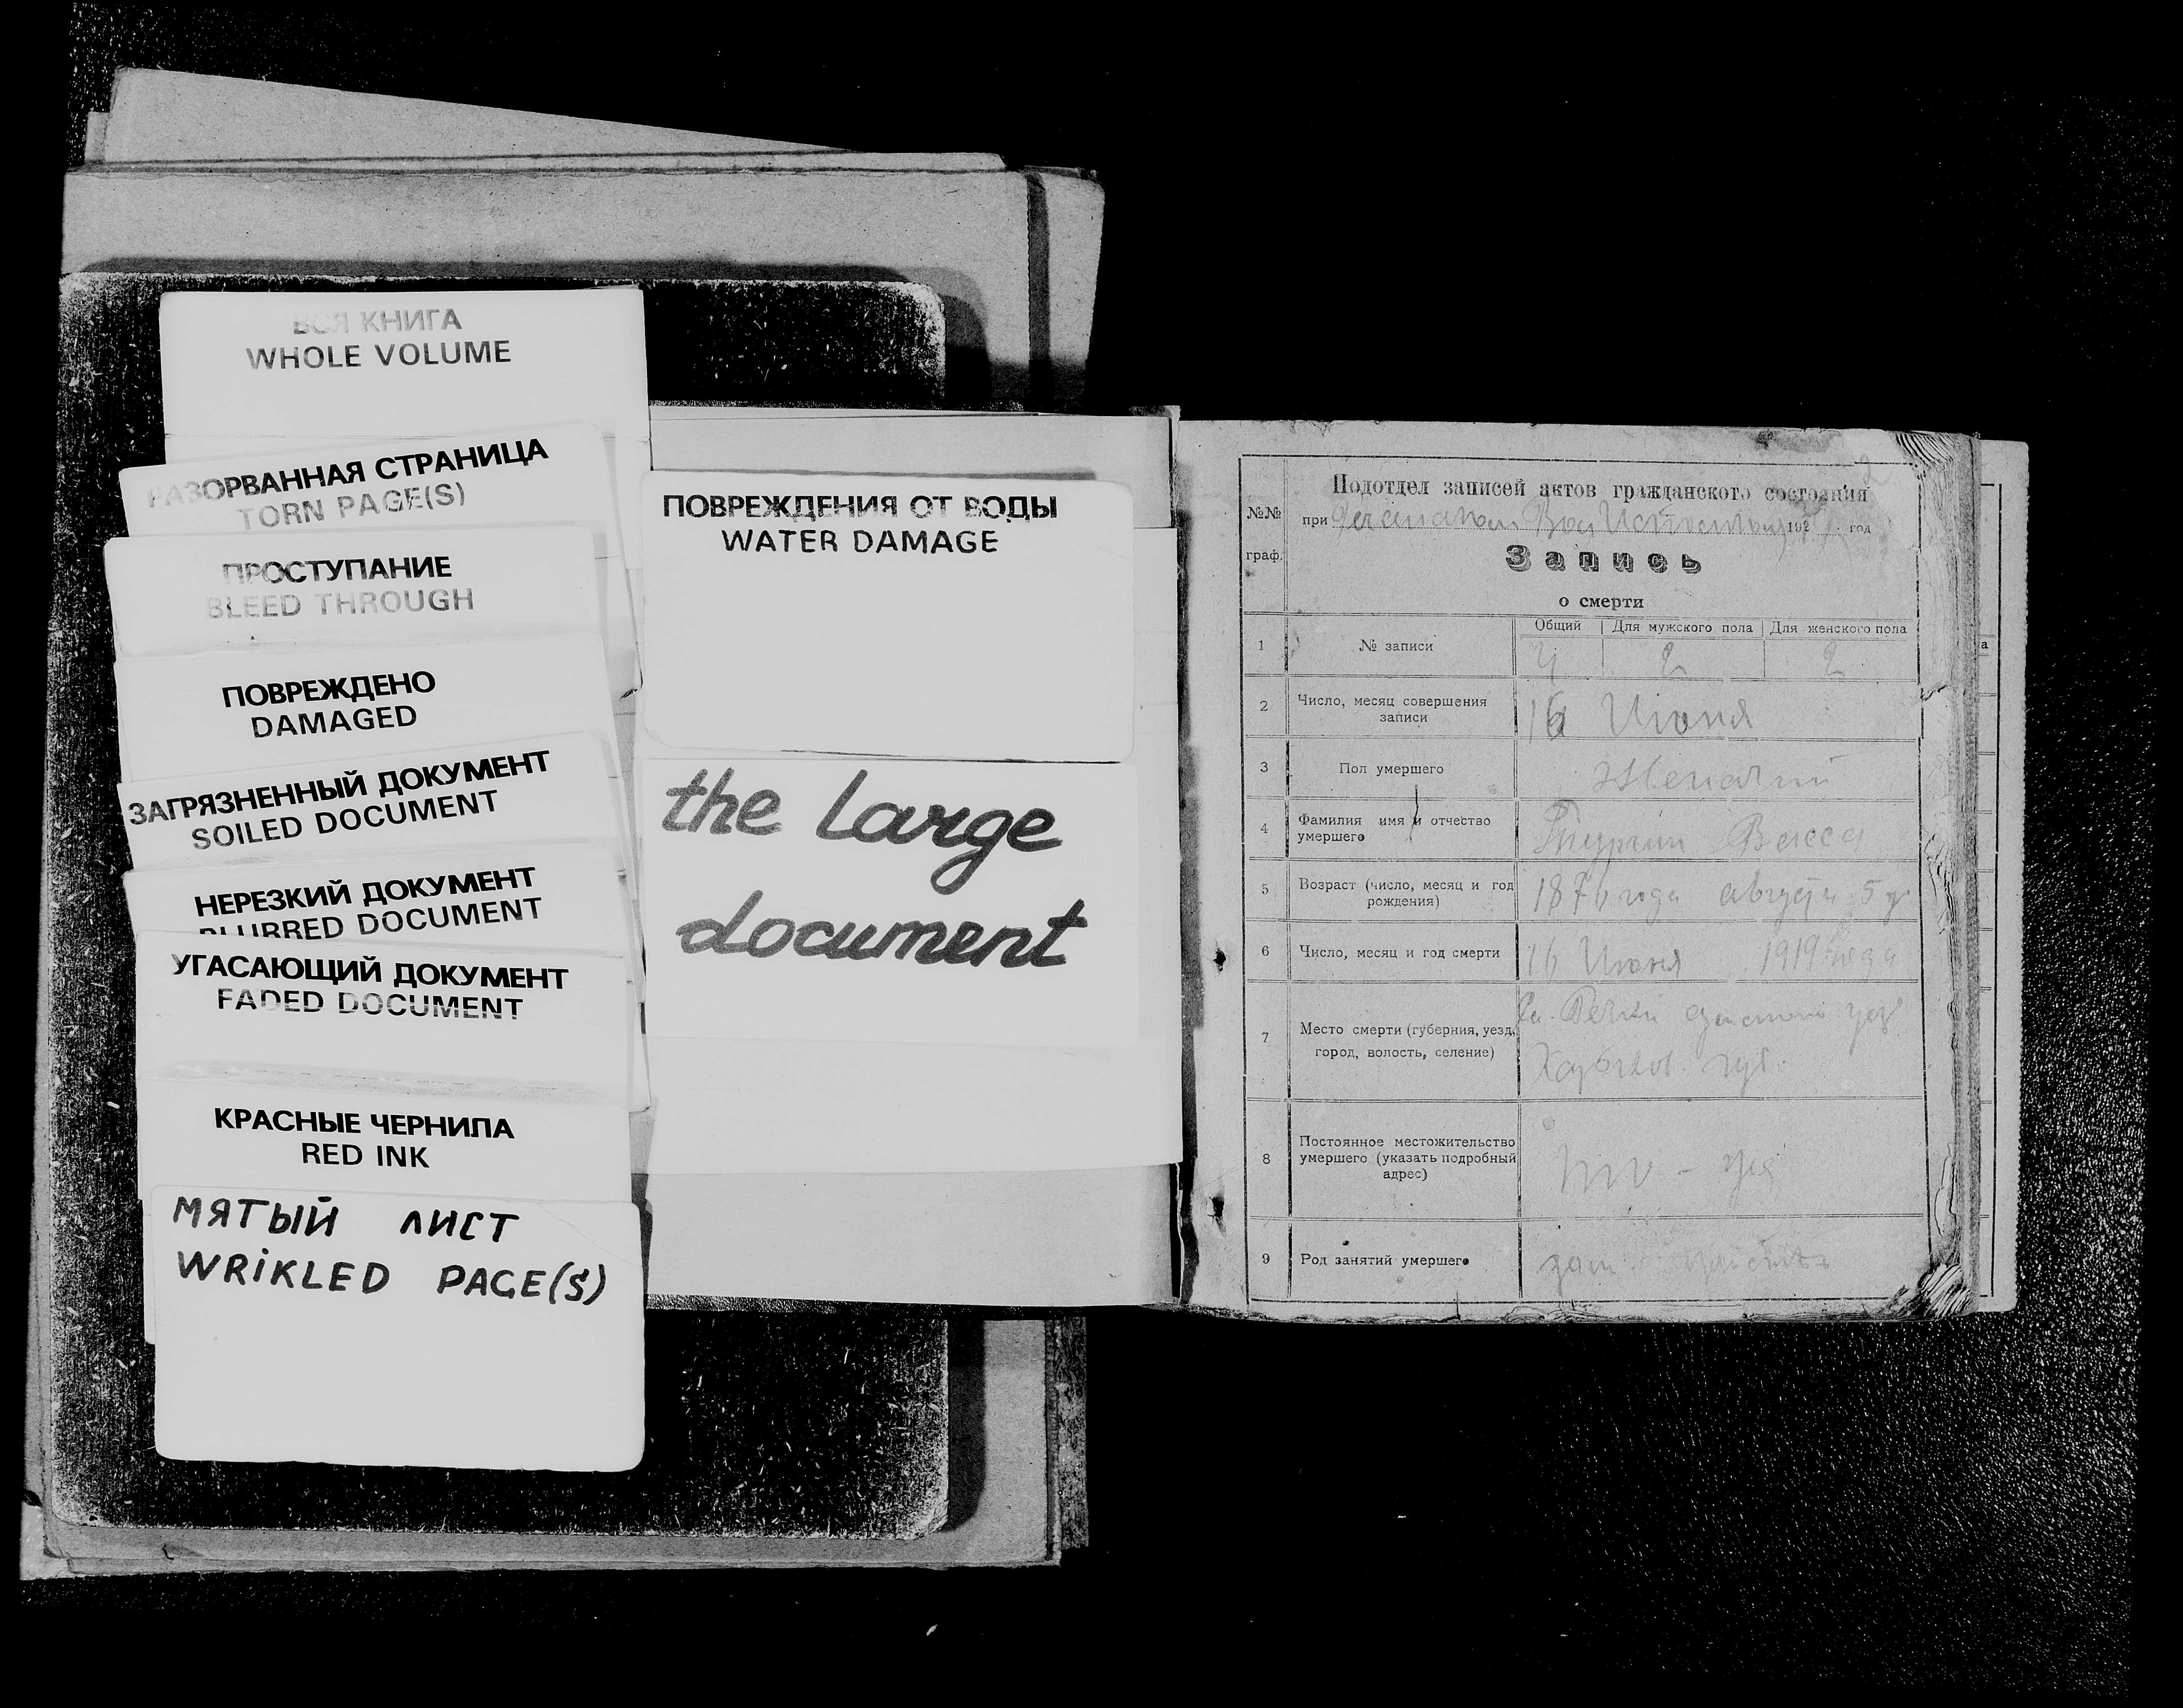 ВСЯ КНИГА
WHOLE VOLUME
РАЗОРВАННАЯ СТРАНИЦА
TORN PAGE(S)
ПРОСТУПАНИЕ
BLEED THROUGH
ПОВРЕЖДЕНО
DAMAGED
ЗАГРЯЗНЕННЫЙ ДОКУМЕНТ
SOILED DOCUMENT
НЕРЕЗКИЙ ДОКУМЕНТ
BLURRED DOCUMENT
УГАСАЮЩИЙ ДОКУМЕНТ
FADED DOCUMENT
КРАСНЫЕ ЧЕРНИЛА
RED INK
МЯТЫЙ ЛИСТ
WRIKLED PAGE(S)
ПОВРЕЖДЕНИЯ ОТ ВОДЫ
WATER DAMAGE
the large
document
Подотдел записей актов гражданского состояния
№№ граф.
при 192 год
Запись
о смерти
Общий Для мужского пола Для женского пола
1 № записи 4 2 2
2 Число, месяц совершения
записи 16 Июня
3 Пол умершего Женский
4 Фамилия имя и отчество
умершего Васса
5 Возраст (число, месяц и год
рождения) года августа 5
6 Число, месяц и год смерти 16 Июня 1919 года
7 Место смерти (губерния, уезд,
город, волость, селение) Речки уез
Харьков. губ.
8 Постоянное местожительство
умершего (указать подробный
адрес)
9 Род занятий умершего